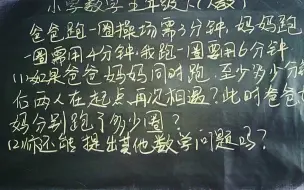 小学数学五年级下(人教)
爸爸跑一圈操场需3分钟,妈妈跑
一圈需用4分钟,我跑一圈要用6分钟
(1)如果爸爸妈妈同时跑,至少多少分钟
后两人在起点再次相遇?此时爸爸
妈分别跑了多少圈?
(2)你还能提出其他数学问题吗?